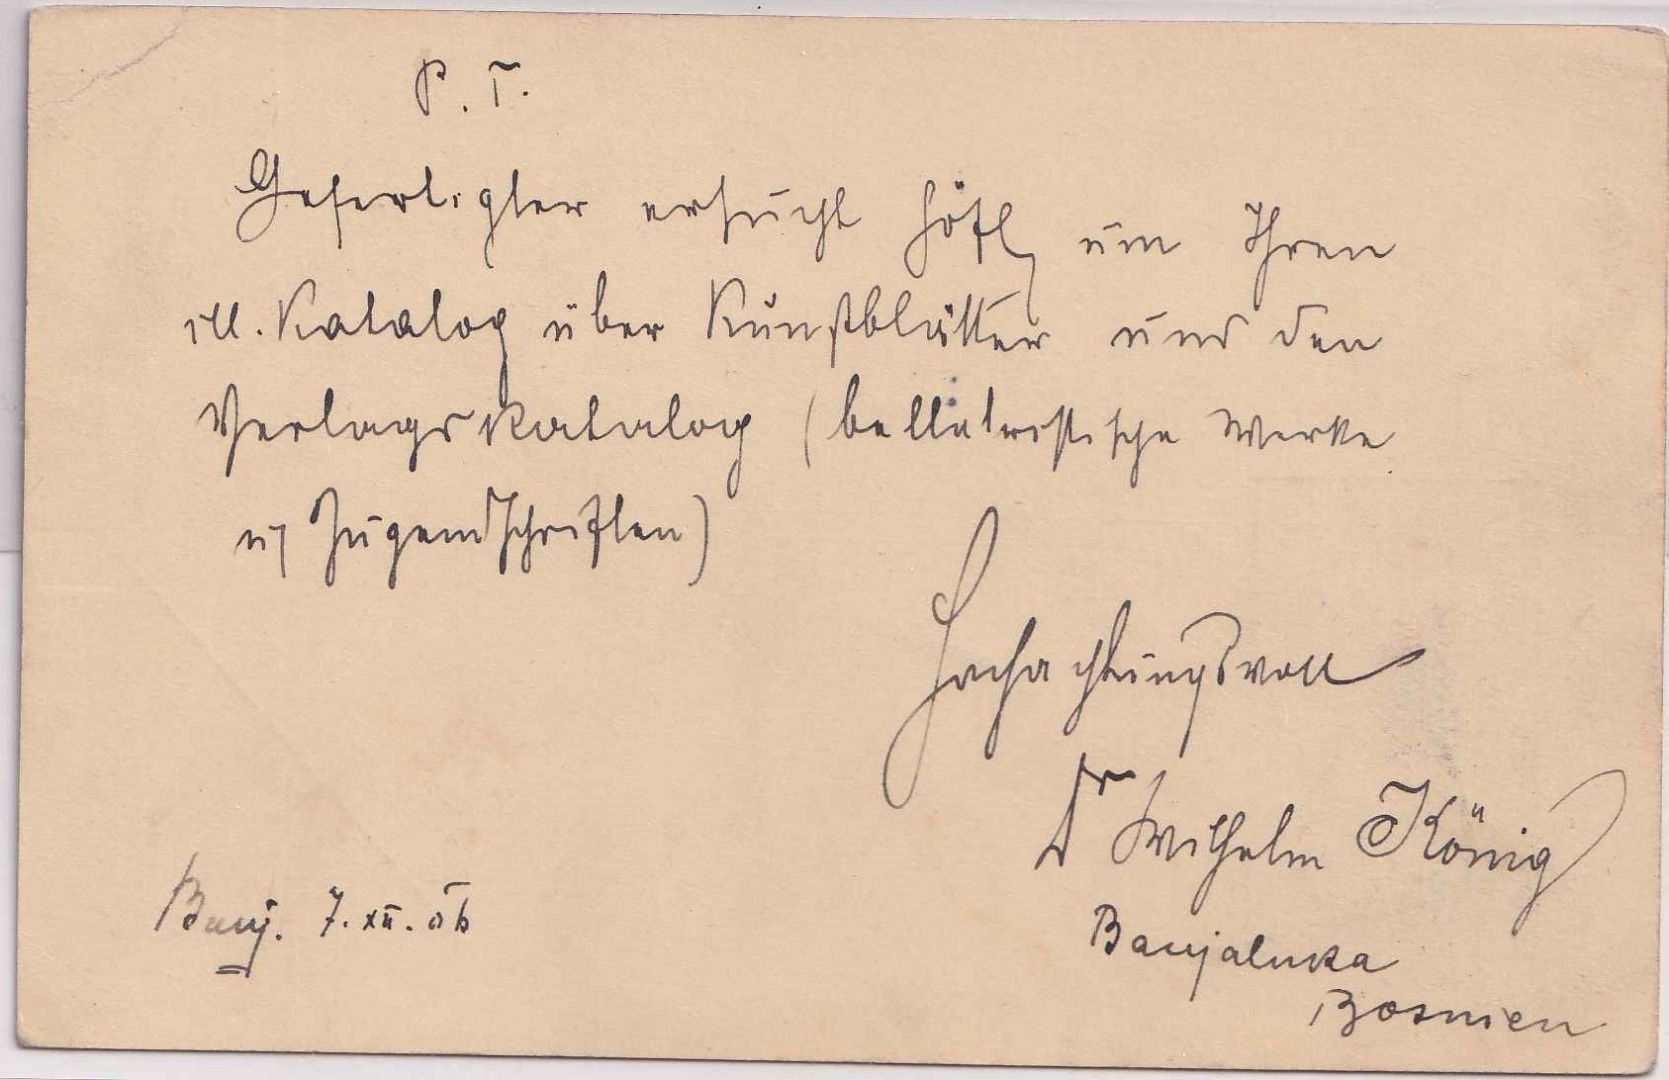 P. T.
Gefertigter ersucht höfl. um Ihren
ill. Katalog über Kunstblätter und den
Verlagskatalog (belletristische Werke
u. Jugendschriften)
Hochachtungsvoll
Dr Wilhelm König
Banjaluka
Bosnien
Banj. 7. XII. 06